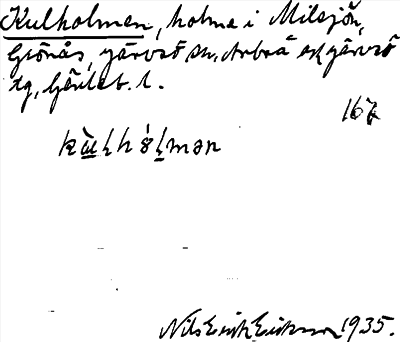 Kulholmen, holme i Milsjön,
Grönås, Järvsö sn. Arbrå och Järvsö
tg, Gävleb. l.
167
kùlhólmən
Nils Erik Eriksson 1935.